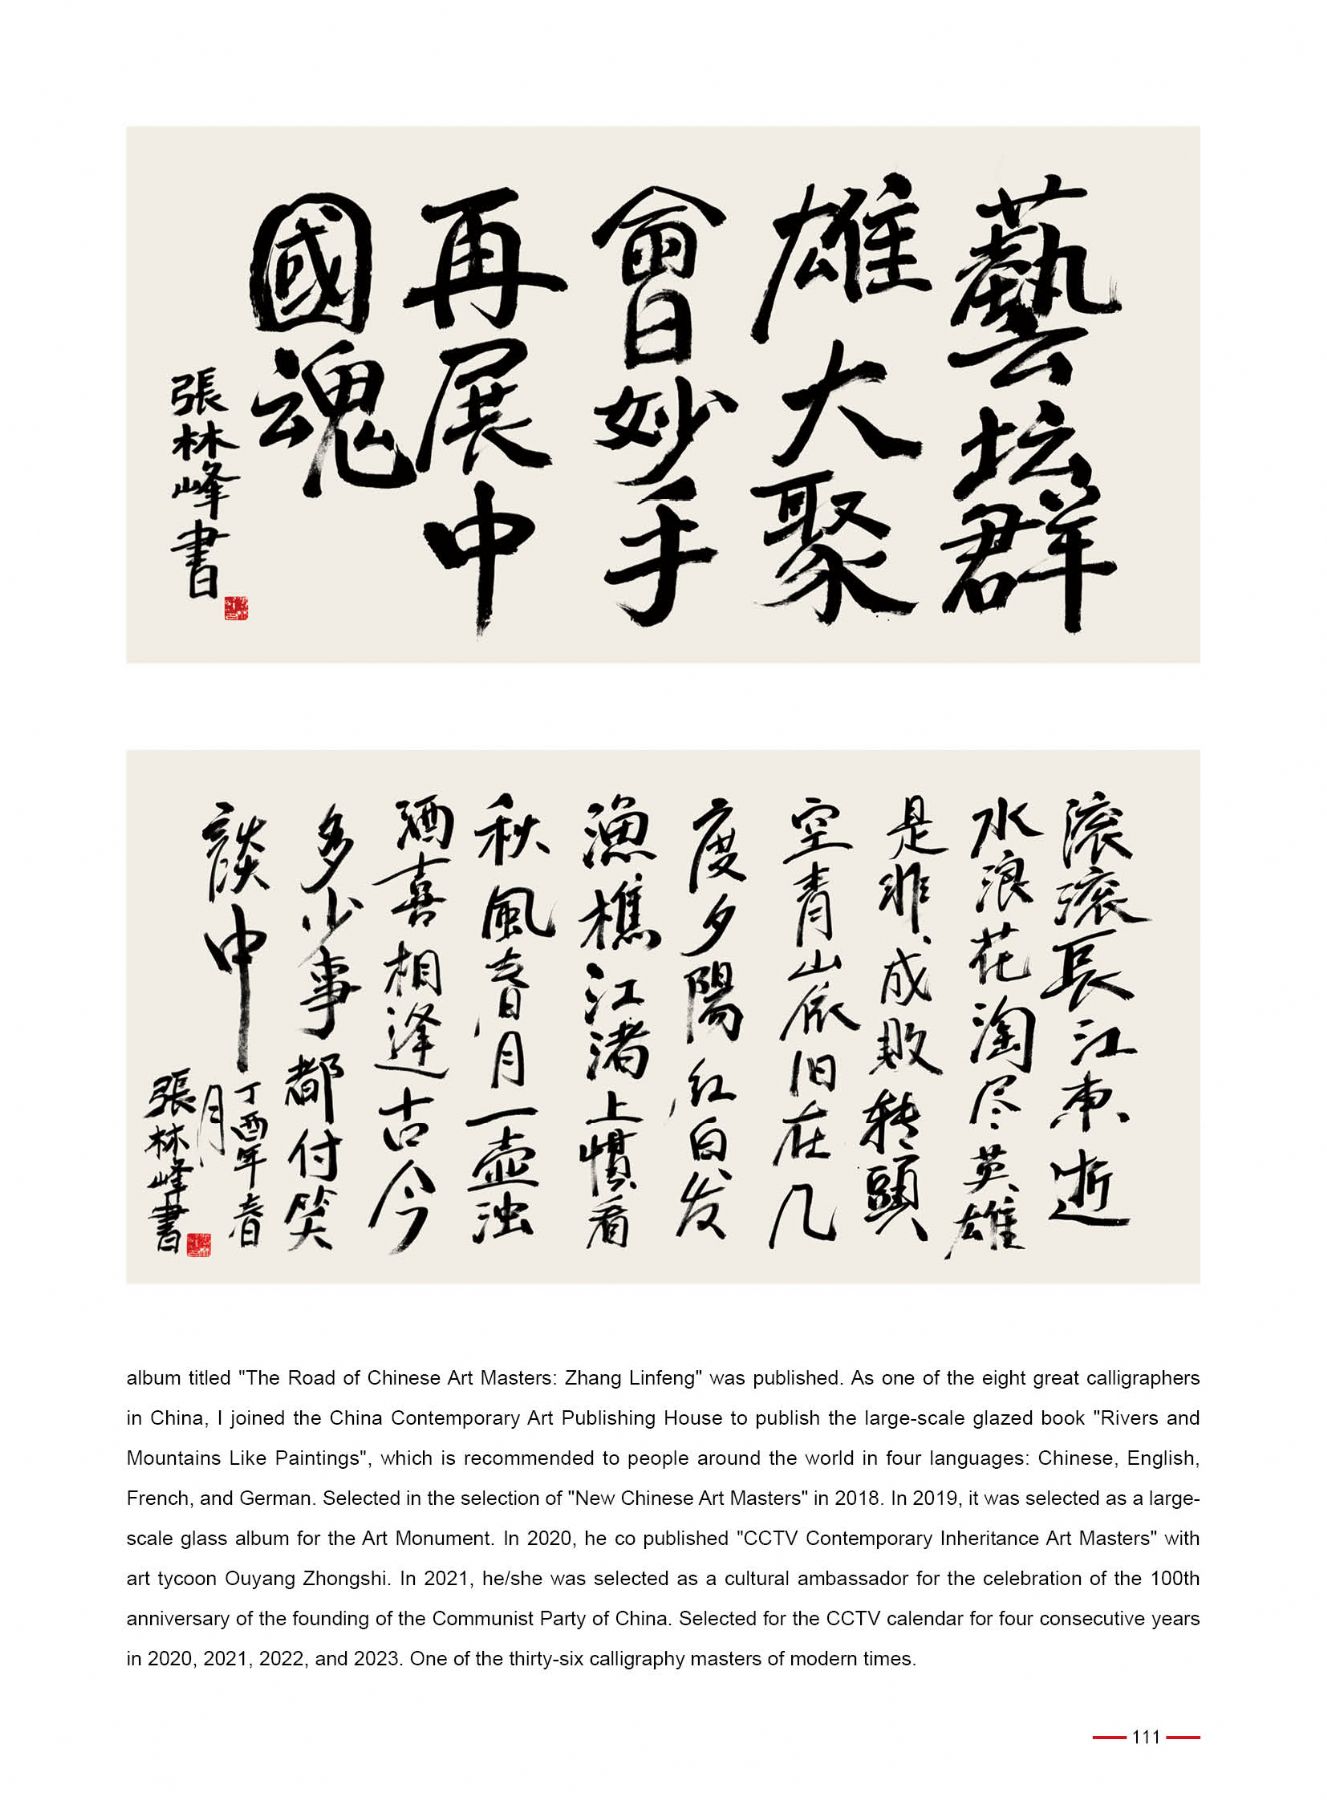 藝坛群
雄大聚
會妙手
再展中
國魂
張林峰書
滚滚長江東逝
水浪花淘尽英雄
是非成敗转頭
空青山依旧在几
度夕陽红白发
漁樵江渚上慣看
秋風春月一壶浊
酒喜相逢古今
多少事都付笑
談中
丁酉年春
月
張林峰書
album titled "The Road of Chinese Art Masters: Zhang Linfeng" was published. As one of the eight great calligraphers
in China, I joined the China Contemporary Art Publishing House to publish the large-scale glazed book "Rivers and
Mountains Like Paintings", which is recommended to people around the world in four languages: Chinese, English,
French, and German. Selected in the selection of "New Chinese Art Masters" in 2018. In 2019, it was selected as a large-
scale glass album for the Art Monument. In 2020, he co published "CCTV Contemporary Inheritance Art Masters" with
art tycoon Ouyang Zhongshi. In 2021, he/she was selected as a cultural ambassador for the celebration of the 100th
anniversary of the founding of the Communist Party of China. Selected for the CCTV calendar for four consecutive years
in 2020, 2021, 2022, and 2023. One of the thirty-six calligraphy masters of modern times.
111